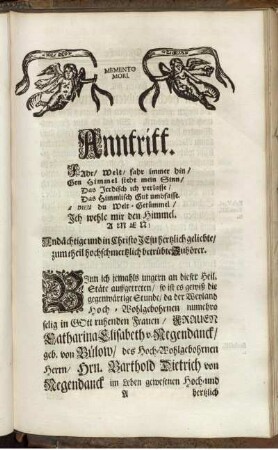 MEMENTO
MORI.
Anntritt.
FAhr/ Welt/ fahr immer hin/
Gen Himmel steht mein Sinn/
Das Irrdisch ich verlasse/
Das Himmlisch Gut umbfasse.
du Welt-Getümmel/
Ich wehle mir den Himmel.
AMEN!
Andächtige und in Christo JEsu hertzlich geliebte/
zum theil hochschmertzlich betrübte Zuhörer.
BIn ich jemahls ungern an dieser Heil.
Stäte auffgetreten/ so ist es gewiß die
gegenwärtige Stunde/ da der Weyland
Hoch-Wohlgebohrnen nunmehro
selig in GOtt ruhenden Frauen/ FRAUEN
Catharina Elisabeth v. Negendanck/
geb. von Bülow/ des Hoch-Wohlgebohrnen
Herrn/ Hrn. Barthold Dietrich von
Negendanck im Leben gewesenen Hoch-und
A hertzlich